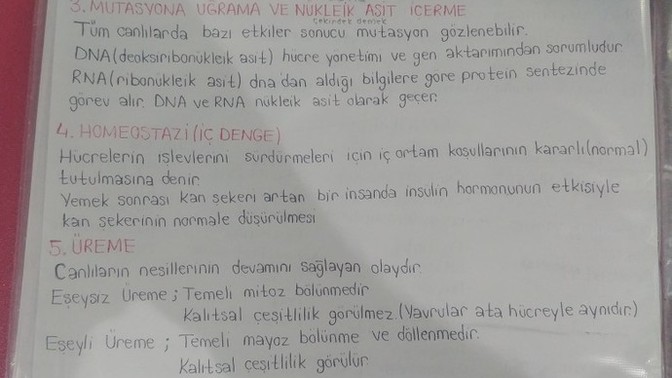 3. MUTASYONA UĞRAMA VE NÜKLEİK ASİT İÇERME
çekirdek demek
Tüm canlılarda bazı etkiler sonucu mutasyon gözlenebilir.
DNA (deoksiribonükleik asit) hücre yönetimi ve gen aktarımından sorumludur
RNA (ribonükleik asit) dna'dan aldığı bilgilere göre protein sentezinde
görev alır. DNA ve RNA nükleik asit olarak geçer.
4. HOMEOSTAZİ (İÇ DENGE)
Hücrelerin işlevlerini sürdürmeleri için iç ortam koşullarının kararlı (normal)
tutulmasına denir.
Yemek sonrası kan şekeri artan bir insanda insulin hormonunun etkisiyle
kan şekerinin normale düşürülmesi
5. ÜREME
Canlıların nesillerinin devamını sağlayan olaydır.
Eşeysiz Üreme ; Temeli mitoz bölünmedir
Kalıtsal çeşitlilik görülmez. (Yavrular ata hücreyle aynıdır.)
Eşeyli Üreme ; Temeli mayoz bölünme ve döllenmedir.
Kalıtsal çeşitlilik görülür.